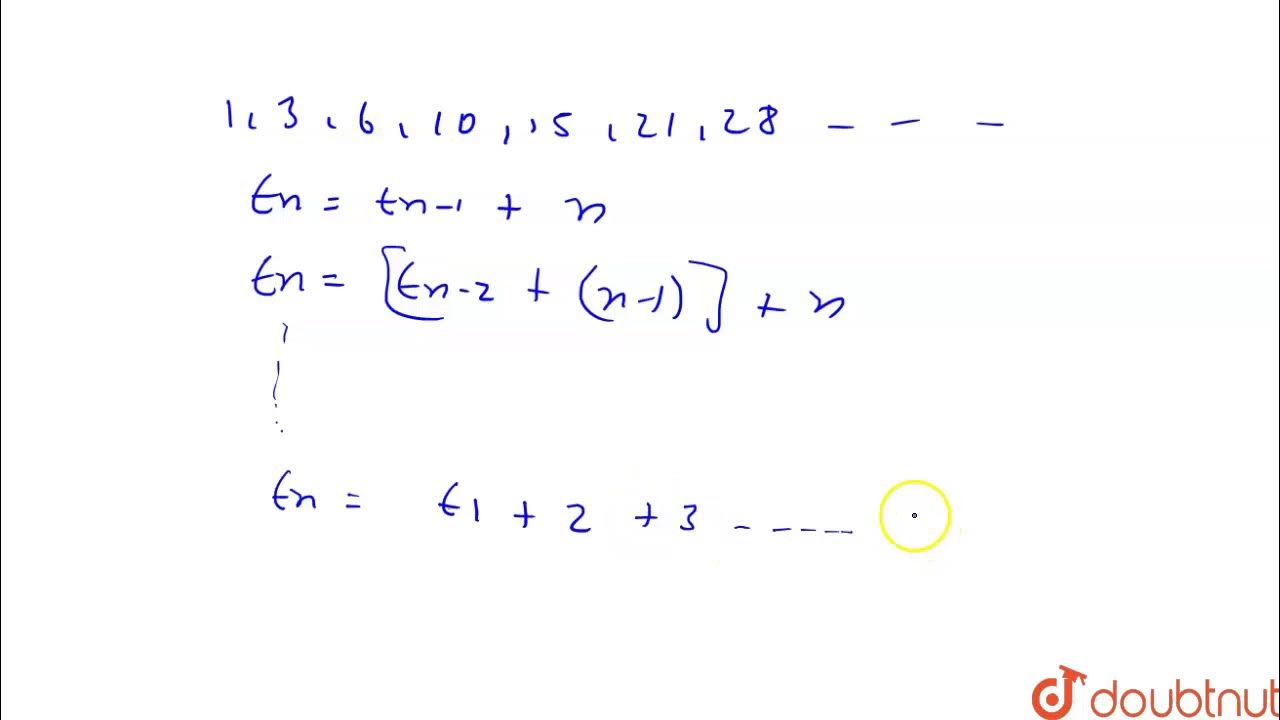 1, 3, 6, 10, 15, 21, 28 - - -
tn = tn-1 + n
tn = [tn-2 + (n-1)] + n
tn = t1 + 2 + 3 - - - - -
doubtnut